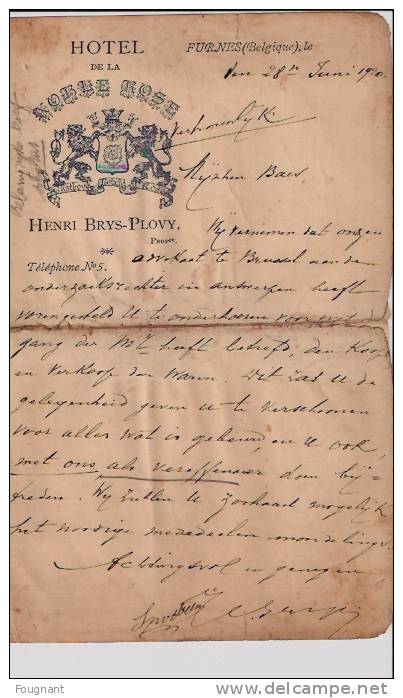 HOTEL
DE LA
NOBLE ROSE
FURNES (Belgique), le
den 28n Juni 1920.
Vertrouwelijk
Mijnheer Baes
HENRI BRYS-PLOVY,
PROPRE.
Téléphone No 5.
Wij vernemen dat onzen
advokaat te Brussel aan den
onderzoeksrechter in antwerpen heeft
voorengesteld U te onderhooren voor wat de
gang der Mt heeft betreft, den Koop
en Verkoop der Waren. Dit zal U de
gelegenheid geven U te verschoonen
voor alles wat is gebeurd, en U ook,
met ons, als vereffenaar doen bij=
treden. Wij zullen U zoohaast mogelijk
het noodige mededeelen mondelings.
Achtingsvol en genegen
Fougnant
delcampe.net